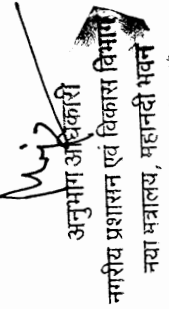 अनुभाग अधिकारी
नगरीय प्रशासन एवं विकास विभाग
नया मंत्रालय, महानदी भवन